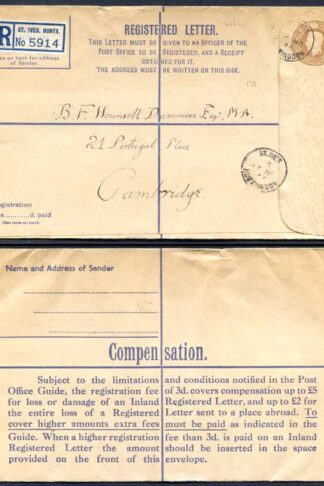 REGISTERED LETTER.
THIS LETTER MUST BE GIVEN TO AN OFFICER OF THE
POST OFFICE TO BE REGISTERED, AND A RECEIPT
OBTAINED FOR IT.
THE ADDRESS MUST BE WRITTEN ON THIS SIDE.
R ST. IVES, HUNTS.
No 5914
on back for address
of Sender.
B. F. Esq. M.A.
21 Portugal Place
Cambridge.
egistration
e............d. paid
(See note on back)
Name and Address of Sender
Compensation.
Subject to the limitations and conditions notified in the Post
Office Guide, the registration fee of 3d. covers compensation up to £5
for loss or damage of an Inland Registered Letter, and up to £2 for
the entire loss of a Registered Letter sent to a place abroad. To
cover higher amounts extra fees must be paid as indicated in the
Guide. When a higher registration fee than 3d. is paid on an Inland
Registered Letter the amount should be inserted in the space
provided on the front of this envelope.